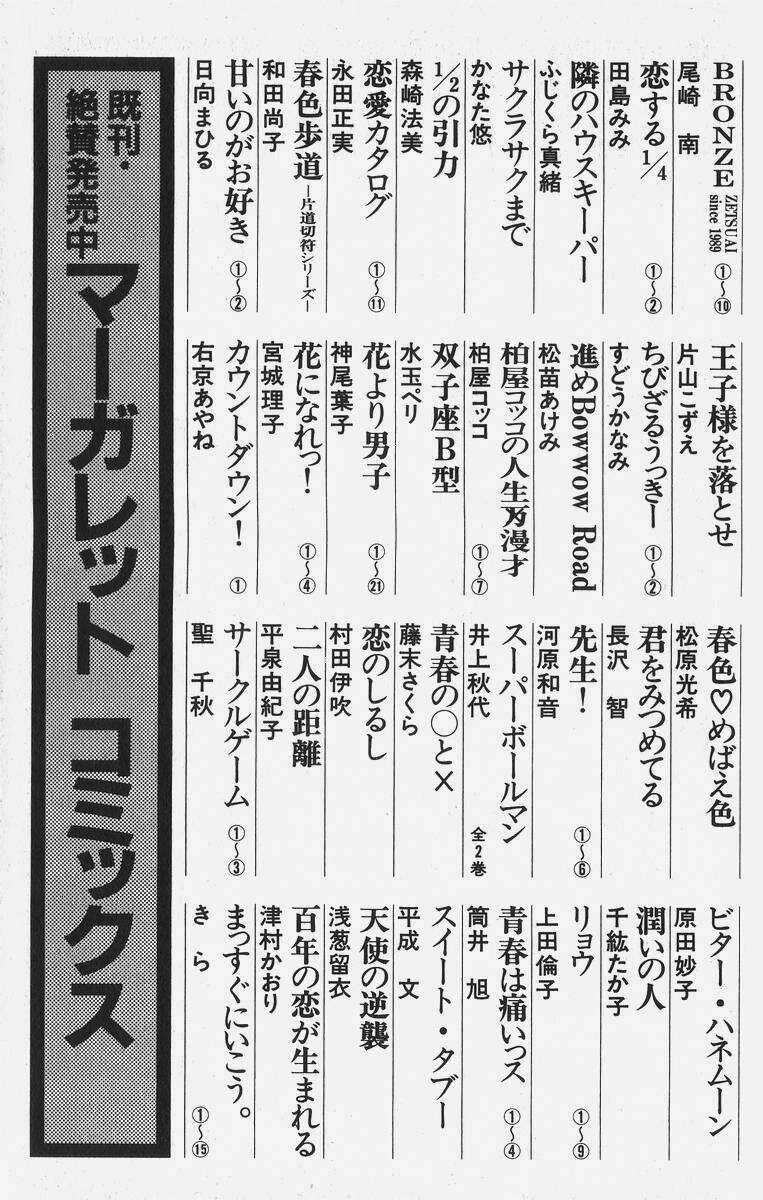 BRONZE ZETSUAI since 1989 ①〜⑩
尾崎 南
恋する1/4 ①〜②
田島みみ
隣のハウスキーパー
ふじくら真緒
サクラサクまで
かなた悠
1/2の引力
森崎法美
恋愛カタログ ①〜⑪
永田正実
春色歩道 ―片道切符シリーズ―
和田尚子
甘いのがお好き ①〜②
日向まひる
王子様を落とせ
片山こずえ
ちびざるうっきー ①〜②
すどうかなみ
進めBowwow Road
松苗あけみ
柏屋コッコの人生万漫才 ①〜⑦
柏屋コッコ
双子座B型
水玉ペリ
花より男子 ①〜㉑
神尾葉子
花になれっ! ①〜④
宮城理子
カウントダウン! ①
右京あやね
春色♡めばえ色
松原光希
君をみつめてる
長沢 智
先生! ①〜⑥
河原和音
スーパーボールマン 全2巻
井上秋代
青春の○と×
藤末さくら
恋のしるし
村田伊吹
二人の距離
平泉由紀子
サークルゲーム ①〜③
聖 千秋
ビター・ハネムーン
原田妙子
潤いの人
千紘たか子
リョウ ①〜⑨
上田倫子
青春は痛いっス ①〜④
筒井 旭
スイート・タブー
平成 文
天使の逆襲
浅葱留衣
百年の恋が生まれる
津村かおり
まっすぐにいこう。 ①〜⑮
きら
既刊・
絶賛発売中
マーガレット コミックス